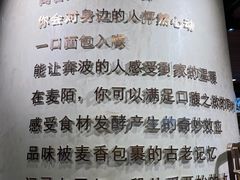 你会对身边的人怦然心动
一口面包入喉
能让奔波的人感受到家的温暖
在麦陌，你可以满足口腹之欲
感受食材发酵产生的奇妙效应
品味被麦香包裹的古老记忆